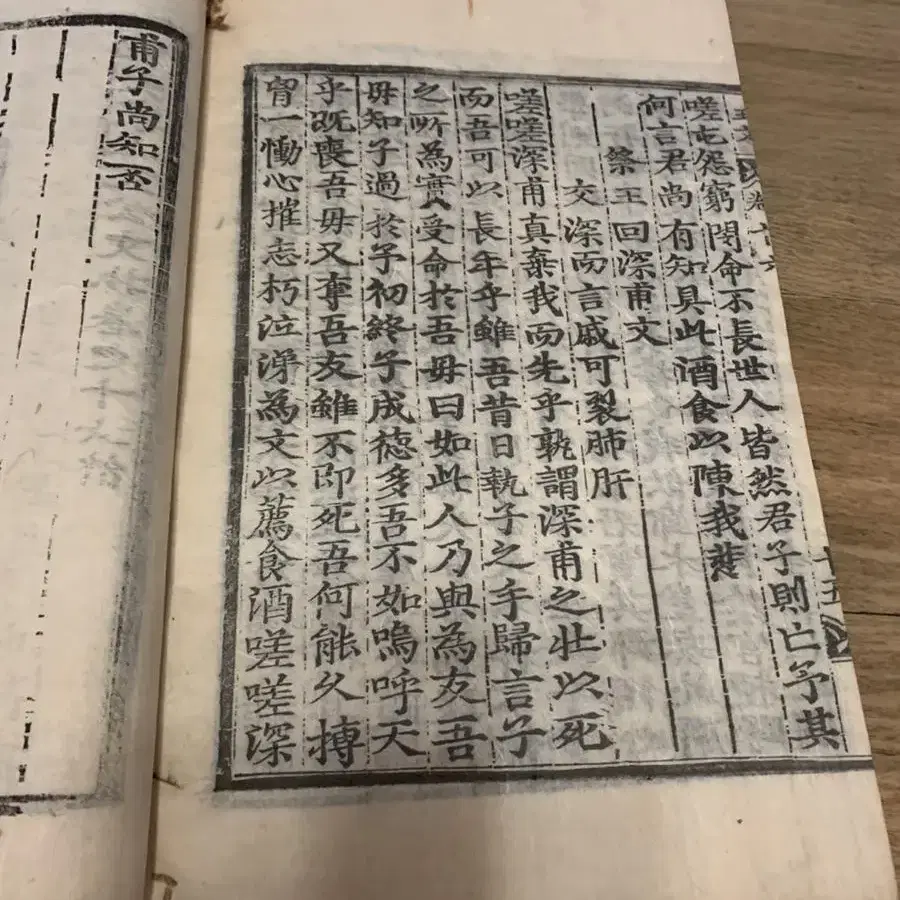 嗟屯怨窮閔命不長世人皆然君子則亡予其
何言君尚有知具此酒食以陳我悲
祭王回深甫文
交深而言戚可裂肺肝
嗟嗟深甫真棄我而先乎孰謂深甫之壯以死
而吾可以長年乎雖吾昔日執子之手歸言子
之所為實受命於吾毋曰如此人乃與為友吾
毋知子過於予初終子成德多吾不如嗚呼天
乎既喪吾毋又奪吾友雖不即死吾何能久搏
胷一慟心摧志朽泣涕為文以薦食酒嗟嗟深
甫子尚知否